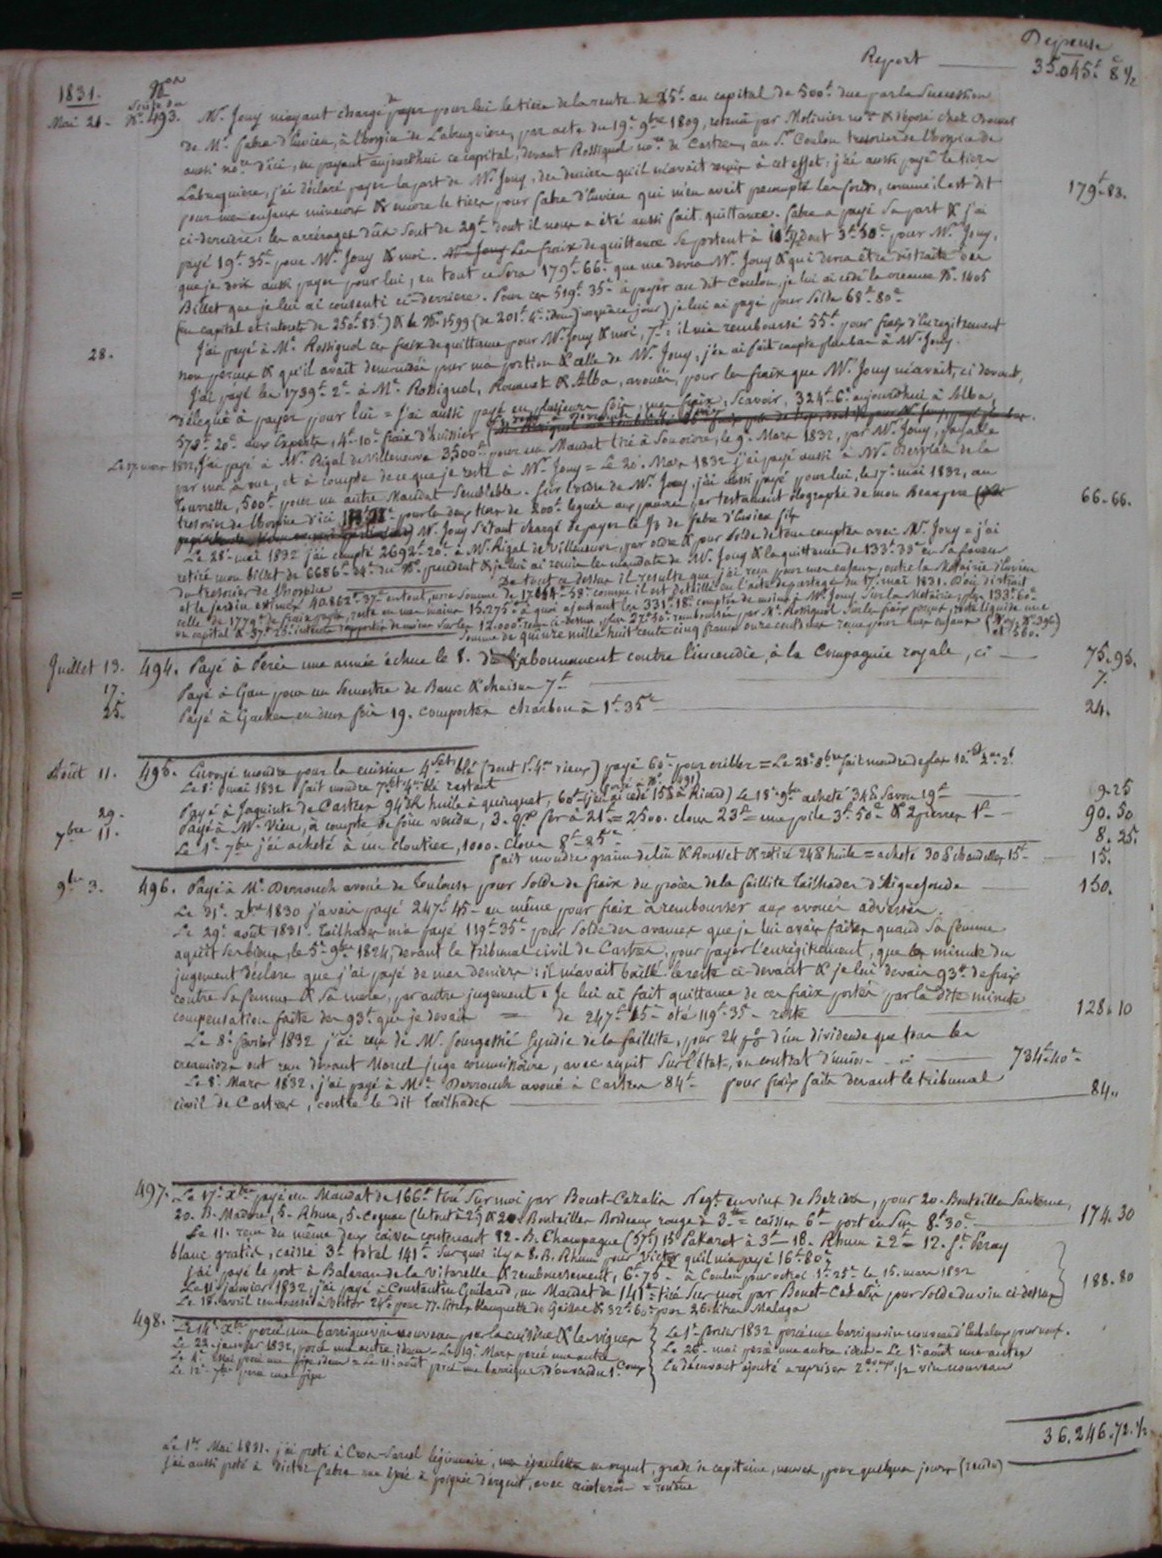 Dépense
Report 35.045f 8c ½
1831. Nos
Mai 21. Suite du No 493. Mr Jouy m'ayant chargé de payer pour lui le tiers de la rente de 25f au capital de 500f due par la Succession
de Mr fabre d'Luvien, à l'hospice de Labruguière, par acte du 19e 9bre 1809, retenu par Molinier nore & déposé chez
aussi nore d'ici, en payant aujourd'hui ce capital, devant Rossignol nore de Castres, au Sr Coulon tresorier de l'hospice de
Labruguière, j'ai déclaré payer la part de Mr Jouy, des deniers qu'il m'avait remis à cet effet: j'ai aussi payé le tiers
pour mes enfans mineurs & encore le tiers pour fabre d'Luvien qui m'en avait precompté les fonds, comme il est dit 179f 83.
ci-derrière: les arrérages dûs sont de 29f dont il nous a été aussi fait quittance. fabre a payé sa part & j'ai
payé 19f 35c pour Mr Jouy & moi. Les fraix de quittance se portent à dont 3f 50c pour Mr Jouy,
que je dois aussi payer pour lui, en tout ce sera 179f 66c que me devra Mr Jouy & qui devra etre distraite des
Billet que je lui ai consenti ci-derrière. Pour ces 519f 35c à payer au dit Coulon, je lui ai cédé la creance No 1605
(en capital et interets de 250f 83c) & le No 1599 (de 201f 4c idem) jour) je lui ai payé pour solde 68f 80c
28. J'ai payé à Me Rossignol ces fraix de quittance pour Mr Jouy & moi, 7f: il m'a remboursé 55f pour frais d'enregitrement
non perçus & qu'il avait demandés pour ma portion & celle de Mr Jouy, j'en ai fait compte plus bas à Mr Jouy.
J'ai payé les 1739f 2c à Me Rossignol, & Alba, avoués, pour les fraix que Mr Jouy m'avait, ci devant,
délégué à payer pour lui = J'ai aussi payé en plusieurs fois, mes fraix, scavoir, 324f 6c aujourd'hui à Alba,
573f 20c aux Experts, 4f 10c fraix d'huissier
1832, J'ai payé à Mr Rigal de Villeneuve 3,500f pour un Mandat tiré à Sorèze, le 9e Mars 1832, par Mr Jouy, payable
par moi à vue, et à compte de ce que je reste à Mr Jouy = Le 20e Mars 1832 j'ai payé aussi à Mr de la
Tourrelle, 500f pour un autre Mandat semblable. Sur l'ordre de Mr Jouy, j'ai aussi payé pour lui, le 17e mai 1832, au 66-66.
tresorier de l'hospice d'ici pour les deux tiers de 200f légués aux pauvres par testament olographe de mon Beaupere
Mr Jouy s'étant chargé de payer le ⅓ de fabre d'Luvien fils
Le 28e mai 1832 j'ai compté 2692f 20c à Mr Rigal de Villeneuve, par ordre & pour solde de tous comptes avec Mr Jouy = j'ai
retiré mon billet de 6686f 34c du No précédent & je lui ai remis les mandats de Mr Jouy & la quittance de 133f 33c en sa faveur
du tresorier de l'hospice De tout ce dessus il resulte que j'ai reçu pour mes enfans, outre la Métairie d'Luvien
et le Jardin estimés 40862f 37c en tout, une somme de 17664f 58c comme il est détaillé en l'acte de partage du 17e mai 1831. D'où distrait
celle de 1779f de fraix payés, reste en mes mains 15.275f à quoi ajoutant les 331f 18c comptés de moins à Mr Jouy sur la Métairie, plus 133f 60c
en capital & 37f 25c interets sur les 12.000f reçus ci-dessus, plus 22f 50c remboursés par Me Rossignol sur les fraix perçus, reste liquide une
Somme de quinze mille huit cents cinq francs onze centimes reçue pour mes enfans (Voyez No 396)
et 580.
Juillet 13. 494. Payé à Perès une année échue le 8. de l'abonnement contre l'incendie, à la Compagnie royale, ci 75.95.
17. Payé à Gau pour un Semestre de Banc & chaises 7f 7.
25. Payé à en deux fois 19. comportes charbon à 1f 35c 24.
Août 11. 495. Envoyé moudre pour la cuisine 4 set blé (dont 1s 4m vieux) payé 60c pour cribler = Le 28e 8bre fait moudre
Le 8e mai 1832 fait moudre 7 set 4m blé restant (porté à No 491)
Payé à Jaquinte de Castres 94 lb huile à quinquet, 60f (j'en ai cédé 15 lb à Ricard) Le 18e 9bre acheté 34 lb Savon 19f 9.25
29. Payé à Mr Vieu, à compte de foin vendu, 3. fer à 21f = 2500. cloux 23f = une pile 3f 50c & 2 pierres 1f 90.50
7bre 11. Le 1e 7bre j'ai acheté à un cloutier, 1000. Cloux 8f 85c 8.25.
fait moudre graine de lin & Rousset & retiré 24 lb huile = acheté 30 lb chandelles 15f 15.
9bre 3. 496. Payé à Me Derrouch avoué de Toulouse pour solde de fraix du procès de la faillite Tailhades d'Aiguefonde 150.
Le 31e xbre 1830 j'avais payé 247f 45 au même pour fraix à rembourser aux avoués adverses.
Le 29e août 1831. Tailhades m'a payé 119f 35c pour solde des avances que je lui avais faites quand sa femme
aquit ses biens, le 5e 9bre 1824, devant le tribunal civil de Castres, pour payer l'enrégitrement, que la minute du
jugement déclare que j'ai payé de mes deniers: il m'avait baillé le reste ci-devant & je lui devais 93f de fraix
contre sa femme & sa mere, par autre jugement = Je lui ai fait quittance de ces fraix portés par la dite minute
compensation faite des 93f que je devais = de 247f 45 oté 119f 35 reste 128.10
Le 8e fevrier 1832 j'ai reçu de Mr fourgassié Syndic de la faillite, pour 24 p% d'un dividende que tous les
creanciers ont reçu devant Marcel juge commissaire, avec aquit sur l'état, ou contrat d'union 734f 40c
Le 8e Mars 1832, j'ai payé à Me Derrouch avoué à Castres 84f pour fraix faits devant le tribunal
civil de Castres, contre le dit Tailhades 84„
497. Le 17e xbre payé un Mandat de 166f tiré sur moi par Bouet-Cazalis Negt en vins de Beziers, pour 20. Bouteilles Sauterne,
20. B. Madere, 5. Rhum, 5. Cognac (le tout à 25) & 20. Bouteilles Bordeaux rouge à 3f = caisses 6f port en sus 8f 30c 174.30
Le 11. reçu du même deux caisses contenant 12. B. Champagne (57f) 15 Pakaret à 3f 18. Rhum à 2f = 12. St Peray
blanc gratis, caisse 3f total 141f sur quoi il y a 8. B. Rhum pour Victor qu'il m'a payé 16f 80c
j'ai payé le port à Balaran de la Vitarelle & remboursement, 6f 75c à Coulon pour octroi 1f 25c le 15. mars 1832
Le 11e Janvier 1832, j'ai payé à Constantin Guibaud, un Mandat de 141f = tiré sur moi par Bouet-Cazalis pour solde du vin ci-dessus } 188.80
Le 18. avril remboursé à Victor 24f pour 77. litres Blanquette de Gaillac & 32f 60c pour 26. litres Malaga
498. Le 14e xbre percé une barrique vin nouveau pour la cuisine & les vignes
Le 22. janvier 1832, percé une autre idem - Le 19e Mars percé une autre
Le 4e Mai percé une pipe idem = Le 11e août percé une barrique
Le 12e 7bre percé une pipe
Le 1e fevrier 1832 percé une barrique vin nouveau d'Enbalays pour nous.
Le 26e mai percé une autre idem - Le 1e août une autre
vin nouveau
36.246.72.½
Le 1er Mai 1831. j'ai preté à Cros-Sarrel légionnaire, mes épaulettes en argent, grade de capitaine, neuves, pour quelques jours (rendu)
j'ai aussi preté à Victor fabre une épée à poignée d'argent, avec ceinturon = rendue